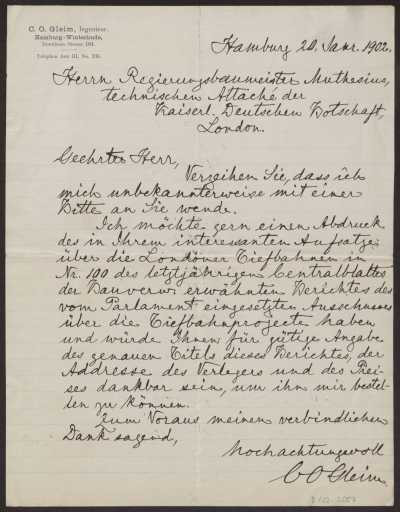 C. O. Gleim, Ingenieur.
Hamburg-Winterhude,
Hamburg 20. Janr. 1902.
Herrn Regierungsbaumeister Muthesius,
technischen Attaché der
Kaiserl. Deutschen Botschaft,
London.
Geehrter Herr,
Verzeihen Sie, dass ich
mich unbekannterweise mit einer
Bitte an Sie wende.
Ich möchte gern einen Abdruck
des in Ihrem interessanten Aufsatze
über die Londoner Tiefbahnen in
Nr. 100 des letztjährigen Centralblattes
der Bauverw. erwähnten Berichtes des
vom Parlament eingesetzten Ausschusses
über die Tiefbahnprojecte haben
und würde Ihnen für gütige Angabe
des genauen Titels dieses Berichtes, der
Addresse des Verlegers und des Prei-
ses dankbar sein, um ihn mir bestel-
len zu können.
Zum Voraus meinen verbindlichen
Dank sagend,
Hochachtungsvoll
C O Gleim